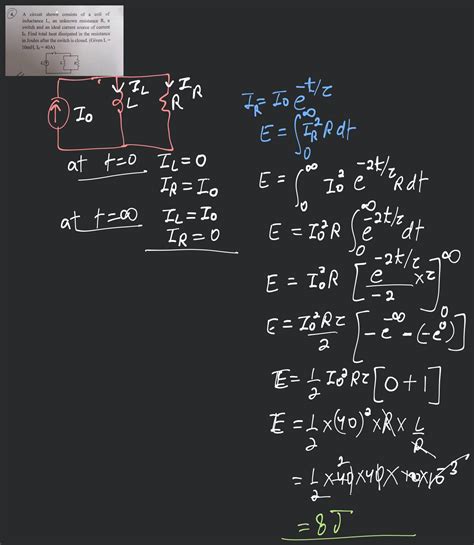 A circuit shown consists of a coil of
inductance L, an unknown resistance R, a
switch and an ideal current source of current
I₀. Find total heat dissipated in the resistance
in Joules after the switch is closed. (Given L =
10mH, I₀ = 40A)
I₀ I_L L R I_R
at t=0 I_L=0
I_R=I₀
at t=∞ I_L=I₀
I_R=0
I_R=I₀e^{-t/τ}
E=∫₀^∞ I_R² R dt
E=∫₀^∞ I₀² e^{-2t/τ} R dt
E=I₀²R ∫₀^∞ e^{-2t/τ} dt
E=I₀²R [e^{-2t/τ}/-2 ×τ]₀^∞
E=I₀²Rτ/2 [-e^{-∞}-(-e⁰)]
E=1/2 I₀²Rτ[0+1]
E=1/2×(40)²×R×L/R
=1/2×40×40×10×10^{-3}
=8J